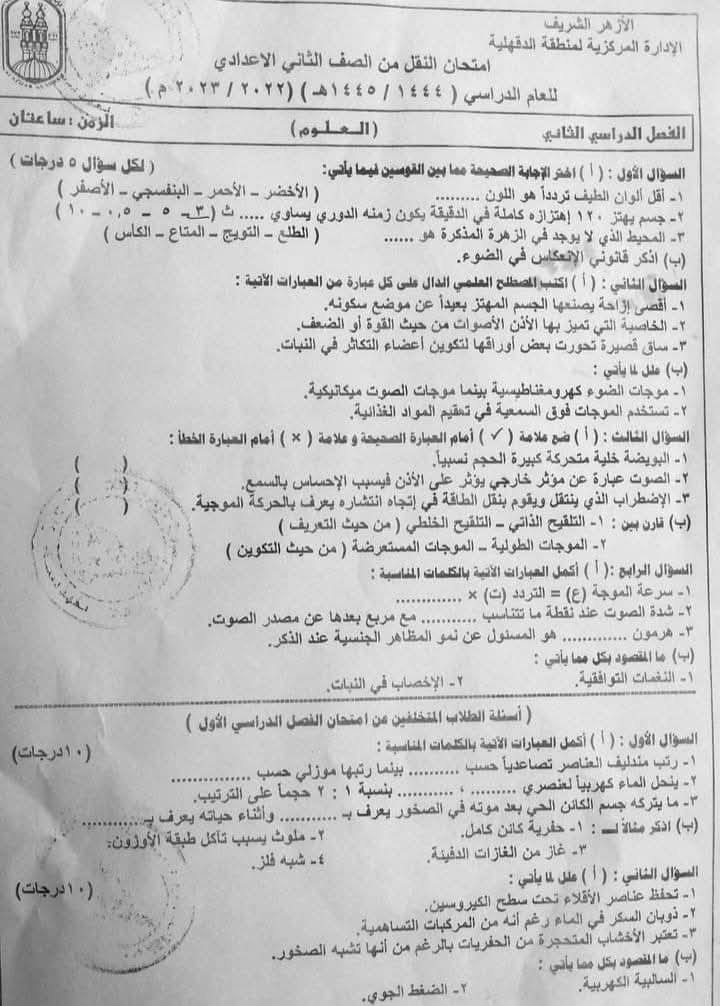 الأزهر الشريف
الإدارة المركزية لمنطقة الدقهلية
امتحان النقل من الصف الثاني الاعدادي
للعام الدراسي ( ١٤٤٤ / ١٤٤٥هـ ) (٢٠٢٢ / ٢٠٢٣ م )
الفصل الدراسي الثاني ( العلوم ) الزمن : ساعتان
السؤال الأول : ( أ ) اختر الإجابة الصحيحة مما بين القوسين فيما يأتي: ( لكل سؤال ٥ درجات )
١- أقل ألوان الطيف تردداً هو اللون ......... ( الأخضر – الأحمر – البنفسجي – الأصفر )
٢- جسم يهتز ١٢٠ إهتزازه كاملة في الدقيقة يكون زمنه الدوري يساوي ..... ث ( ٣ – ٥ – ٠,٥ – ١٠ )
٣- المحيط الذي لا يوجد في الزهرة المذكرة هو ...... ( الطلع – التويج – المتاع – الكأس )
(ب) اذكر قانوني الإنعكاس في الضوء.
السؤال الثاني : ( أ ) اكتب المصطلح العلمي الدال على كل عبارة من العبارات الآتية :
١- أقصى إزاحة يصنعها الجسم المهتز بعيداً عن موضع سكونه.
٢- الخاصية التي تميز بها الأذن الأصوات من حيث القوة أو الضعف.
٣- ساق قصيرة تحورت بعض أوراقها لتكوين أعضاء التكاثر في النبات.
(ب) علل لما يأتي :
١- موجات الضوء كهرومغناطيسية بينما موجات الصوت ميكانيكية.
٢- تستخدم الموجات فوق السمعية في تعقيم المواد الغذائية.
السؤال الثالث : ( أ ) ضع علامة ( ✓ ) أمام العبارة الصحيحة و علامة ( × ) أمام العبارة الخطأ :
١- البويضة خلية متحركة كبيرة الحجم نسبياً. ( )
٢- الصوت عبارة عن مؤثر خارجي يؤثر على الأذن فيسبب الإحساس بالسمع. ( )
٣- الإضطراب الذي ينتقل ويقوم بنقل الطاقة في إتجاه انتشاره يعرف بالحركة الموجية. ( )
(ب) قارن بين : ١- التلقيح الذاتي – التلقيح الخلطي ( من حيث التعريف )
٢- الموجات الطولية – الموجات المستعرضة ( من حيث التكوين )
السؤال الرابع : ( أ ) أكمل العبارات الآتية بالكلمات المناسبة :
١- سرعة الموجة (ع) = التردد (ت) × .............
٢- شدة الصوت عند نقطة ما تتناسب .......... مع مربع بعدها عن مصدر الصوت.
٣- هرمون ............ هو المسئول عن نمو المظاهر الجنسية عند الذكر.
(ب) ما المقصود بكل مما يأتي :
١- النغمات التوافقية. ٢- الإخصاب في النبات.
( أسئلة الطلاب المتخلفين عن امتحان الفصل الدراسي الأول )
السؤال الأول : ( أ ) أكمل العبارات الآتية بالكلمات المناسبة : (١٠درجات)
١- رتب مندليف العناصر تصاعدياً حسب .......... بينما رتبها موزلي حسب ..............
٢- ينحل الماء كهربياً لعنصري ......... ، ........... بنسبة ١ : ٢ حجماً على الترتيب.
٣- ما يتركه جسم الكائن الحي بعد موته في الصخور يعرف بـ ........... وأثناء حياته يعرف بـ............
(ب) اذكر مثالاً لـ : ١- حفرية كائن كامل. ٢- ملوث يسبب تآكل طبقة الأوزون.
٣- غاز من الغازات الدفيئة. ٤- شبه فلز.
السؤال الثاني : ( أ ) علل لما يأتي : (١٠درجات)
١- تحفظ عناصر الأقلاء تحت سطح الكيروسين.
٢- ذوبان السكر في الماء رغم أنه من المركبات التساهمية.
٣- تعتبر الأخشاب المتحجرة من الحفريات بالرغم من أنها تشبه الصخور.
(ب) ما المقصود بكل مما يأتي :
١- السالبية الكهربية. ٢- الضغط الجوي.